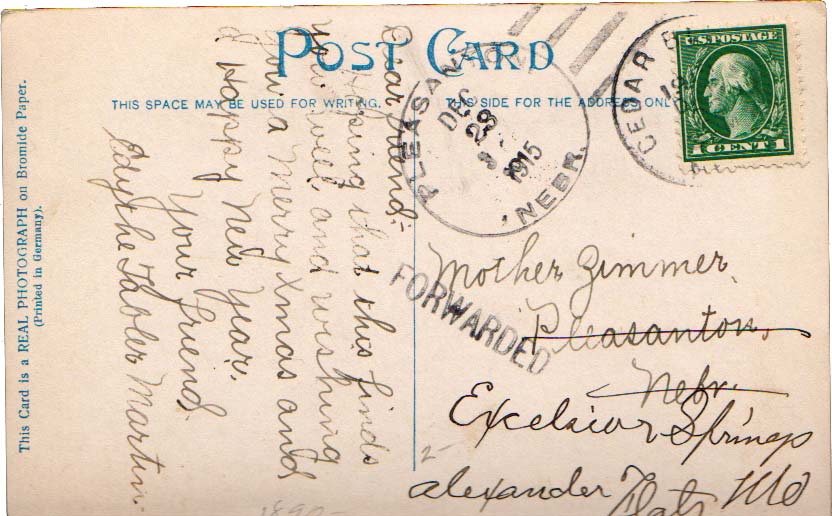 POST CARD
THIS SPACE MAY BE USED FOR WRITING.
THIS SIDE FOR THE ADDRESS ONLY
This Card is a REAL PHOTOGRAPH on Bromide Paper.
(Printed in Germany).
Dear friend:-
Hoping that this finds
you well and wishing
you a Merry Xmas and
a Happy New Year.
Your friend
Edythe Martin.
PLEASANTON
DEC
28
1915
NEBR.
CEDAR
U.S. POSTAGE
1 CENT 1
FORWARDED
Mother Zimmer,
Pleasanton,
Nebr.
Excelsior Springs
alexander Flats Mo
2-
1890-